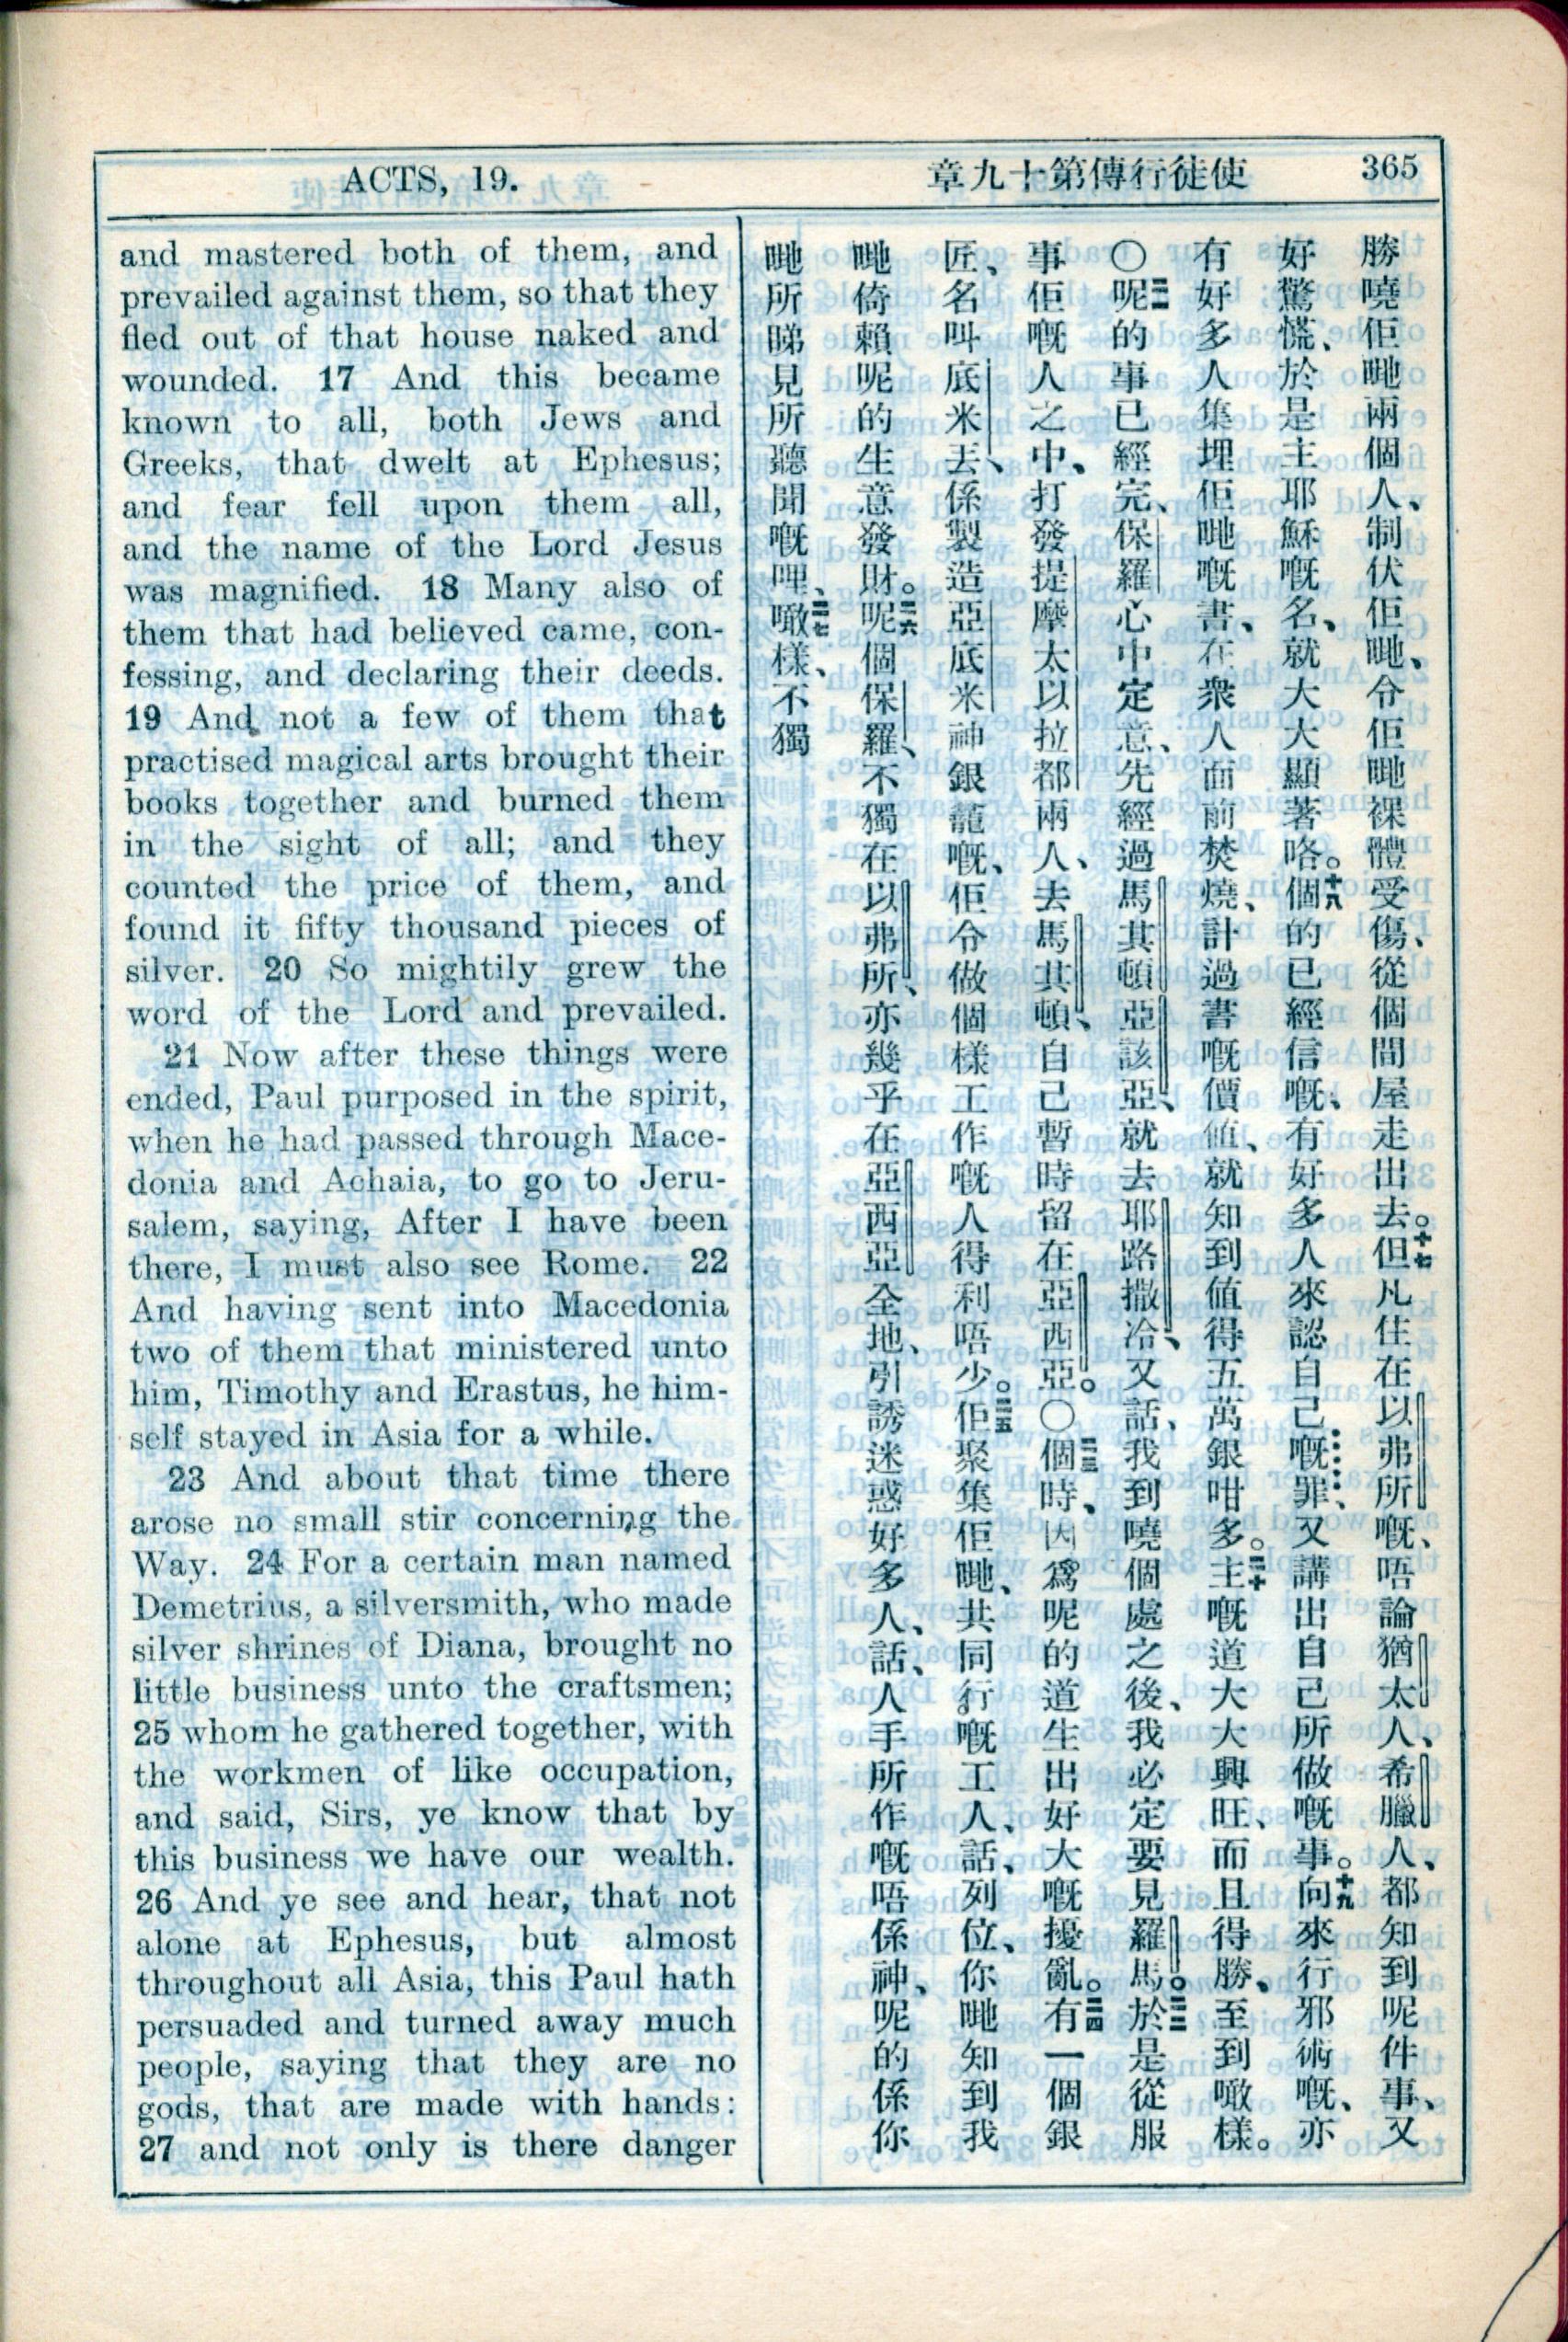 ACTS, 19.
章九十第傳行徒使
365
and mastered both of them, and
prevailed against them, so that they
fled out of that house naked and
wounded. 17 And this became
known to all, both Jews and
Greeks, that dwelt at Ephesus;
and fear fell upon them all,
and the name of the Lord Jesus
was magnified. 18 Many also of
them that had believed came, con-
fessing, and declaring their deeds.
19 And not a few of them that
practised magical arts brought their
books together and burned them
in the sight of all; and they
counted the price of them, and
found it fifty thousand pieces of
silver. 20 So mightily grew the
word of the Lord and prevailed.
21 Now after these things were
ended, Paul purposed in the spirit,
when he had passed through Mace-
donia and Achaia, to go to Jeru-
salem, saying, After I have been
there, I must also see Rome. 22
And having sent into Macedonia
two of them that ministered unto
him, Timothy and Erastus, he him-
self stayed in Asia for a while.
23 And about that time there
arose no small stir concerning the
Way. 24 For a certain man named
Demetrius, a silversmith, who made
silver shrines of Diana, brought no
little business unto the craftsmen;
25 whom he gathered together, with
the workmen of like occupation,
and said, Sirs, ye know that by
this business we have our wealth.
26 And ye see and hear, that not
alone at Ephesus, but almost
throughout all Asia, this Paul hath
persuaded and turned away much
people, saying that they are no
gods, that are made with hands:
27 and not only is there danger
勝曉佢哋兩個人、制伏佢哋、令佢哋裸體受傷、從個間屋走出去。十七但凡住在以弗所嘅、唔論猶太人、希臘人、都知到呢件事、又
好驚慌、於是主耶穌嘅名、就大大顯著咯。十八個的已經信嘅、有好多人來認自己嘅罪、又講出自己所做嘅事。十九向來行邪術嘅、亦
有好多人集埋佢哋嘅書、在衆人面前焚燒、計過書嘅價值、就知到値得五萬銀咁多。二十主嘅道大大興旺、而且得勝、至到噉樣。
〇二一呢的事已經完、保羅心中定意、先經過馬其頓亞該亞、就去耶路撒冷、又話、我到曉個處之後、我必定要見羅馬。二二於是從服
事佢嘅人之中、打發提摩太以拉都兩人、去馬其頓、自己暫時留在亞西亞。〇二三個時、因爲呢的道生出好大嘅擾亂。二四有一個銀
匠、名叫底米丟、係製造亞底米神銀龕嘅、佢令做個樣工作嘅人得利唔少。二五佢聚集佢哋、共同行嘅工人、話、列位、你哋知到我
哋倚賴呢的生意發財。二六呢個保羅、不獨在以弗所、亦幾乎在亞西亞全地、引誘迷惑好多人、話、人手所作嘅唔係神、呢的係你
哋所睇見所聽聞嘅哩、二七噉樣、不獨